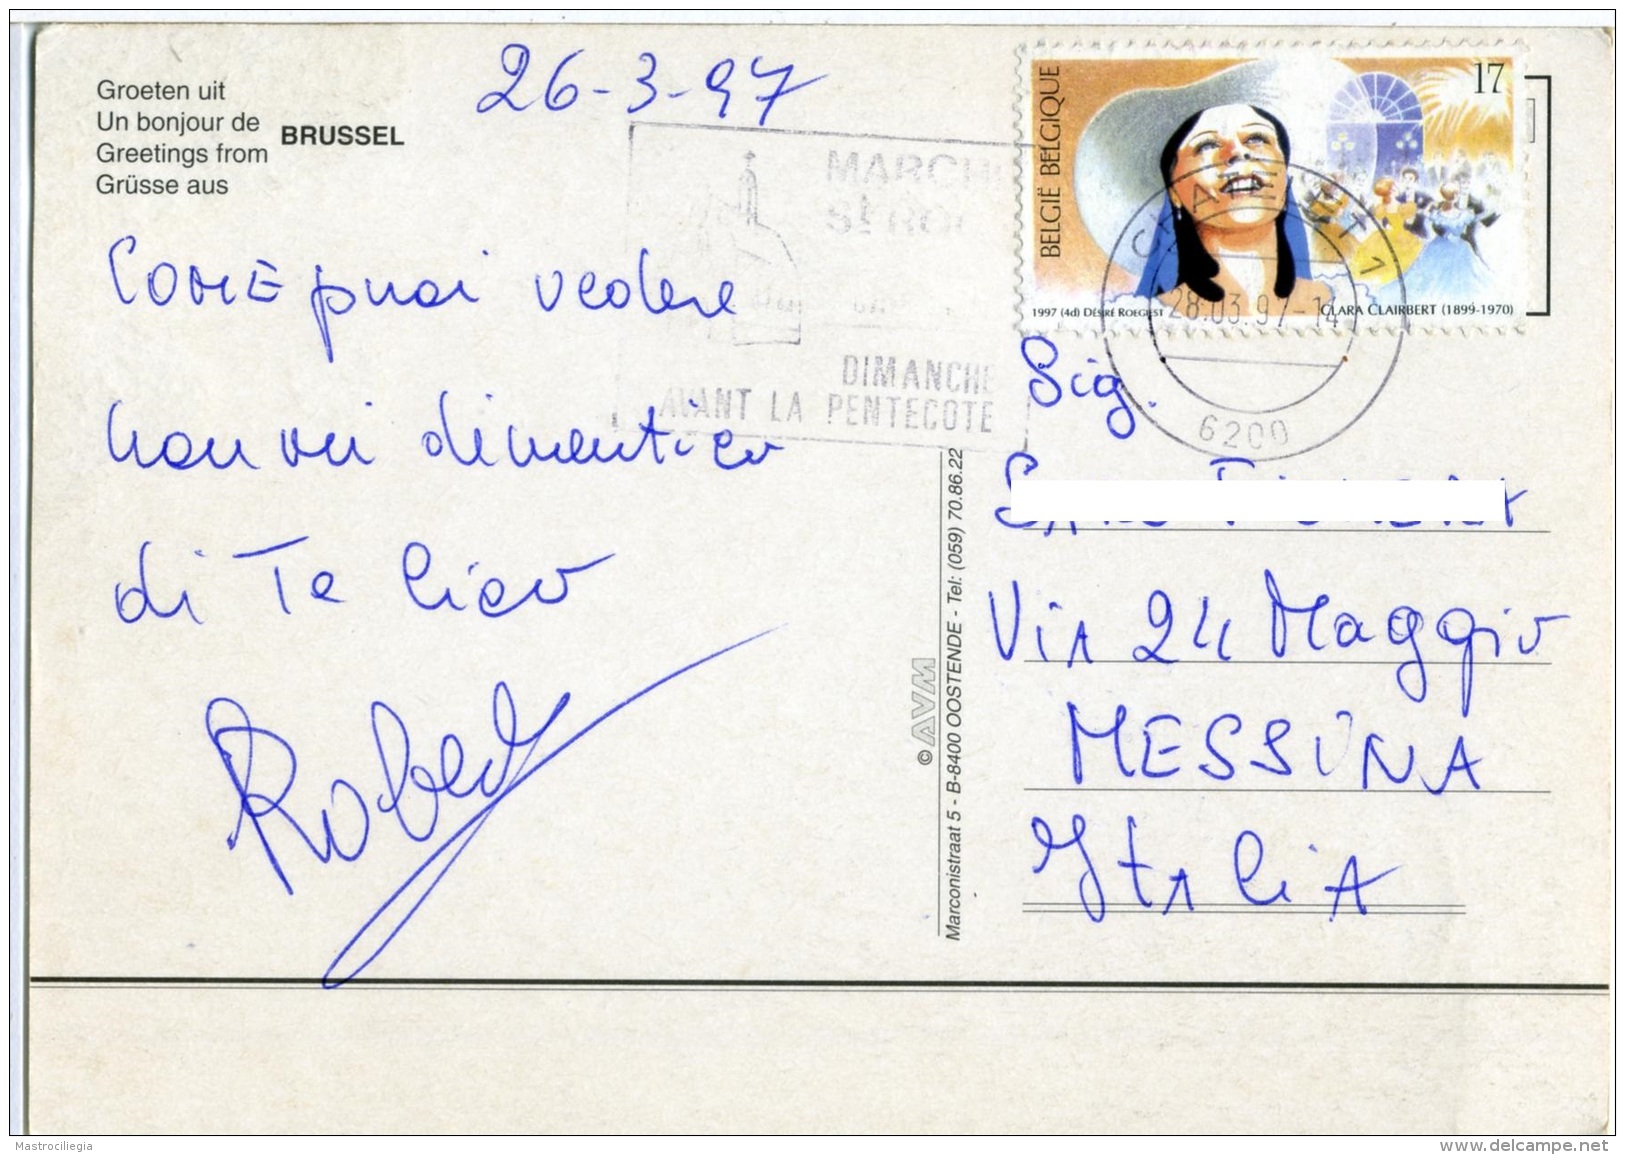 Groeten uit
Un bonjour de
Greetings from
Grüsse aus
BRUSSEL
26-3-97
COME puoi vedere
non mi dimentico
di Te Ciao
MARCHE
St ROCH
DIMANCHE
AVANT LA PENTECOTE
BELGIË BELGIQUE
17
1997 (4d) DÉSIRÉ ROEGIEST
CLARA CLAIRBERT (1899-1970)
CHATELET 1
28.03.97-14
6200
Sig.
Via 24 Maggio
MESSINA
ItaliA
© AVM
Marconistraat 5 - B-8400 OOSTENDE - Tel: (059) 70.86.22
Mastrociliegia
www.delcampe.net